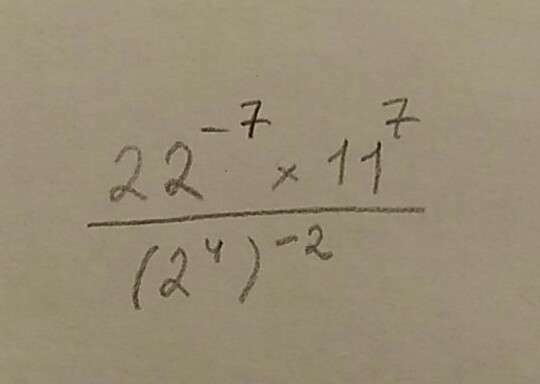 22⁻⁷ × 11⁷
(2⁴)⁻²